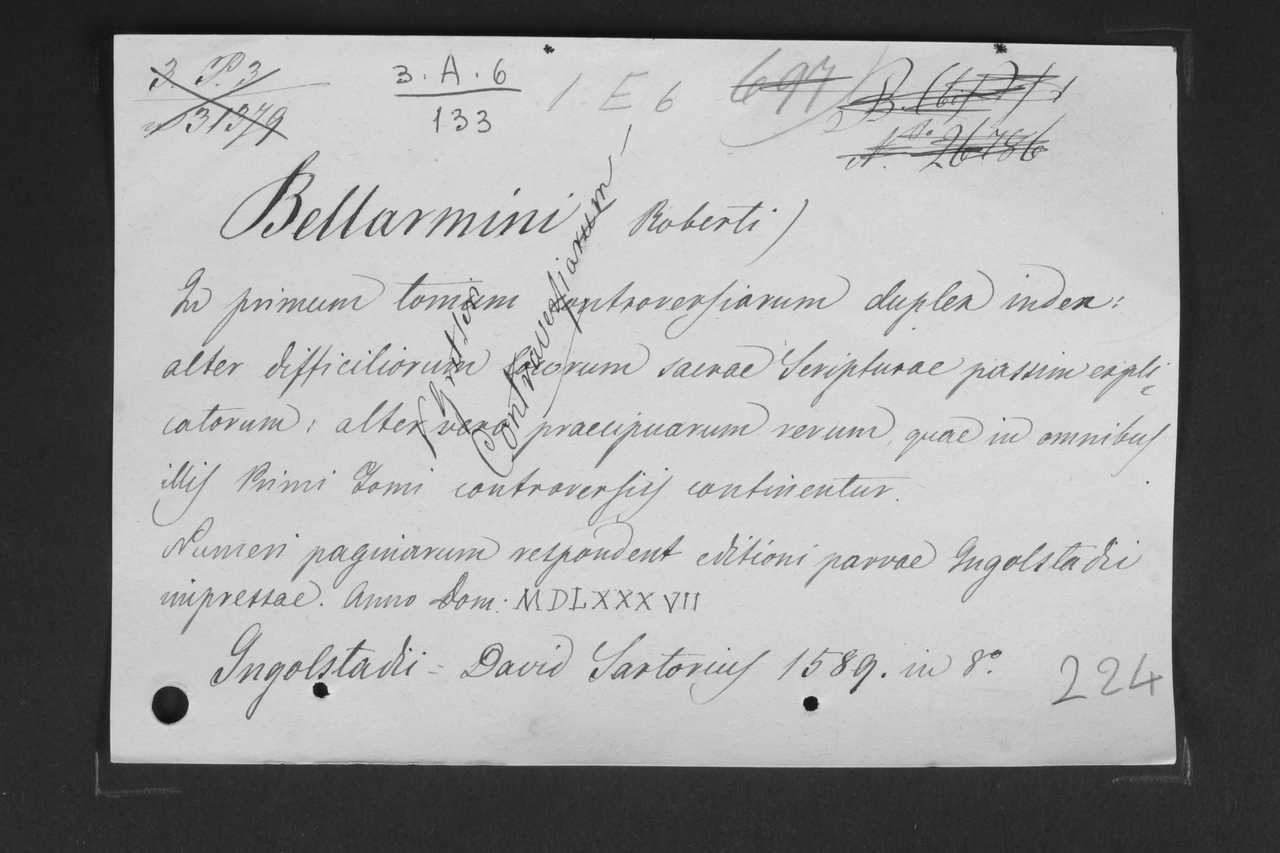 3. P. 3
nº 31379
3. A. 6
133
1 E 6
697
Nº 26786
Bellarmini Roberti)
In primum tomum controversiarum duplex index:
alter difficiliorum locorum sacrae Scripturae passim expli=
catorum; alter vero praecipuarum rerum, quae in omnibus
illis Primi Tomi controversiis continentur.
Numeri paginarum respondent editioni parvae Ingolstadii
impressae. Anno Dom: MDLXXXVII
Ingolstadii - David Sartorius 1589. in 8º
224
Controversiarum